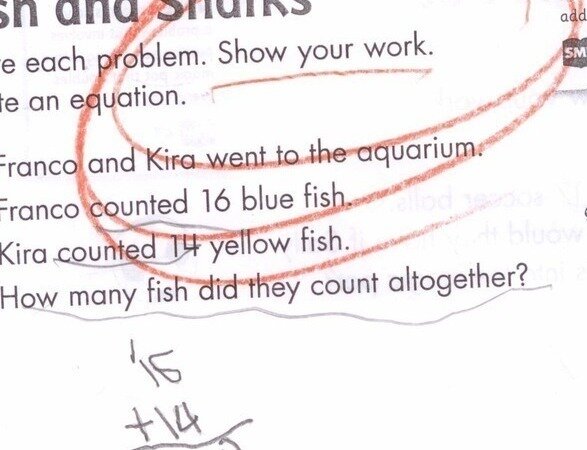 sh and Sharks
add
SM
e each problem. Show your work.
te an equation.
Franco and Kira went to the aquarium.
Franco counted 16 blue fish.
Kira counted 14 yellow fish.
How many fish did they count altogether?
16
+14